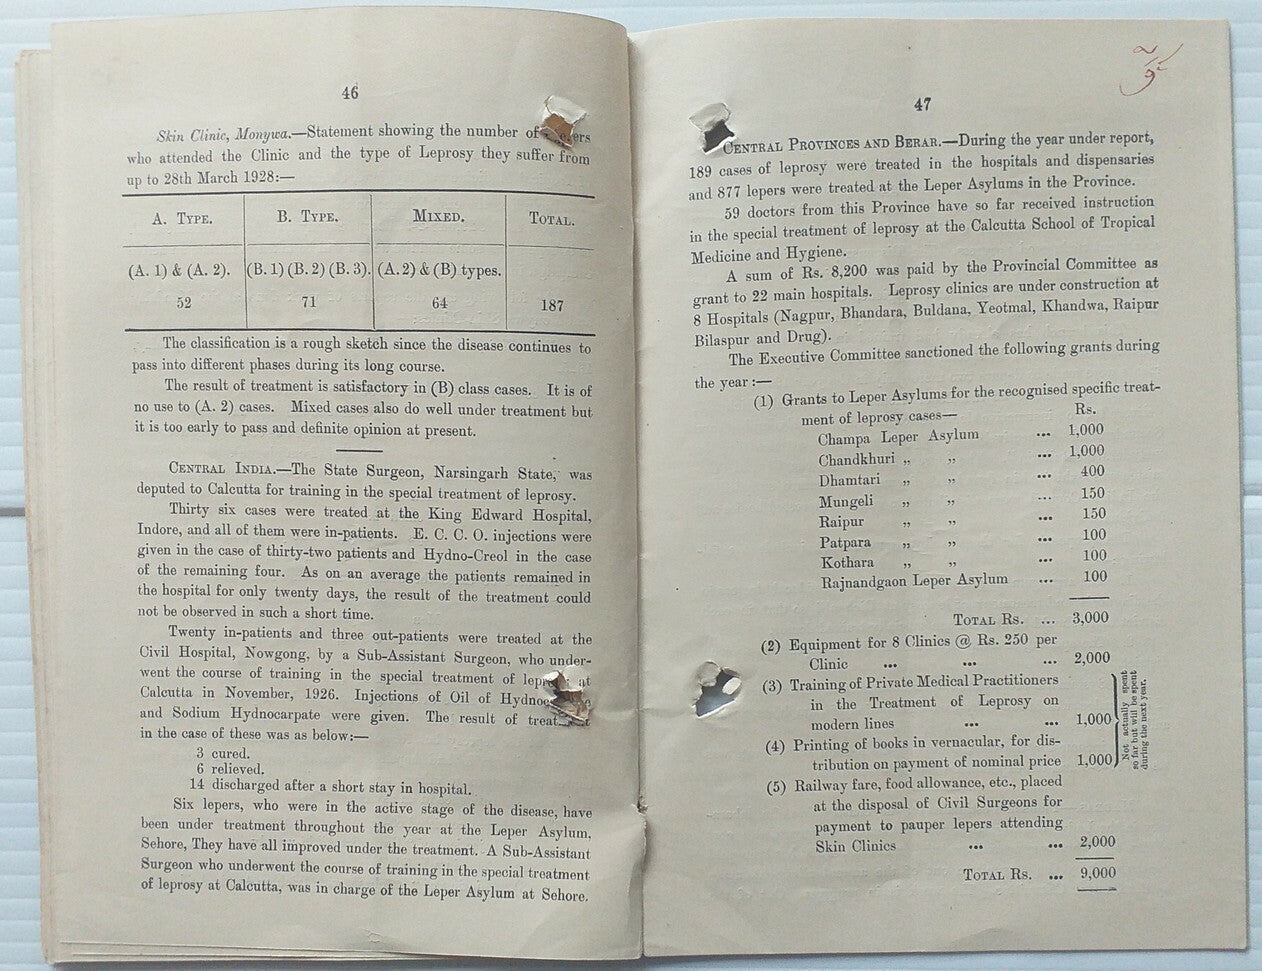 46
Skin Clinic, Monywa.—Statement showing the number of
who attended the Clinic and the type of Leprosy they suffer from
up to 28th March 1928:—
A. Type. B. Type. Mixed. Total.
(A. 1) & (A. 2). (B. 1) (B. 2) (B. 3). (A. 2) & (B) types.
52 71 64 187
The classification is a rough sketch since the disease continues to
pass into different phases during its long course.
The result of treatment is satisfactory in (B) class cases. It is of
no use to (A. 2) cases. Mixed cases also do well under treatment but
it is too early to pass and definite opinion at present.
Central India.—The State Surgeon, Narsingarh State, was
deputed to Calcutta for training in the special treatment of leprosy.
Thirty six cases were treated at the King Edward Hospital,
Indore, and all of them were in-patients. E. C. C. O. injections were
given in the case of thirty-two patients and Hydno-Creol in the case
of the remaining four. As on an average the patients remained in
the hospital for only twenty days, the result of the treatment could
not be observed in such a short time.
Twenty in-patients and three out-patients were treated at the
Civil Hospital, Nowgong, by a Sub-Assistant Surgeon, who under-
went the course of training in the special treatment of at
Calcutta in November, 1926. Injections of Oil of
and Sodium Hydnocarpate were given. The result of
in the case of these was as below:—
3 cured.
6 relieved.
14 discharged after a short stay in hospital.
Six lepers, who were in the active stage of the disease, have
been under treatment throughout the year at the Leper Asylum,
Sehore, They have all improved under the treatment. A Sub-Assistant
Surgeon who underwent the course of training in the special treatment
of leprosy at Calcutta, was in charge of the Leper Asylum at Sehore.
47
Central Provinces and Berar.—During the year under report,
189 cases of leprosy were treated in the hospitals and dispensaries
and 877 lepers were treated at the Leper Asylums in the Province.
59 doctors from this Province have so far received instruction
in the special treatment of leprosy at the Calcutta School of Tropical
Medicine and Hygiene.
A sum of Rs. 8,200 was paid by the Provincial Committee as
grant to 22 main hospitals. Leprosy clinics are under construction at
8 Hospitals (Nagpur, Bhandara, Buldana, Yeotmal, Khandwa, Raipur
Bilaspur and Drug).
The Executive Committee sanctioned the following grants during
the year :—
(1) Grants to Leper Asylums for the recognised specific treat-
ment of leprosy cases— Rs.
Champa Leper Asylum ... 1,000
Chandkhuri „ „ ... 1,000
Dhamtari „ „ ... 400
Mungeli „ „ ... 150
Raipur „ „ ... 150
Patpara „ „ ... 100
Kothara „ „ ... 100
Rajnandgaon Leper Asylum ... 100
Total Rs. ... 3,000
(2) Equipment for 8 Clinics @ Rs. 250 per
Clinic ... ... ... 2,000
(3) Training of Private Medical Practitioners
in the Treatment of Leprosy on
modern lines ... ... 1,000
(4) Printing of books in vernacular, for dis-
tribution on payment of nominal price 1,000
Not actually spent
so far but will be spent
during the next year.
(5) Railway fare, food allowance, etc., placed
at the disposal of Civil Surgeons for
payment to pauper lepers attending
Skin Clinics ... ... 2,000
Total Rs. ... 9,000